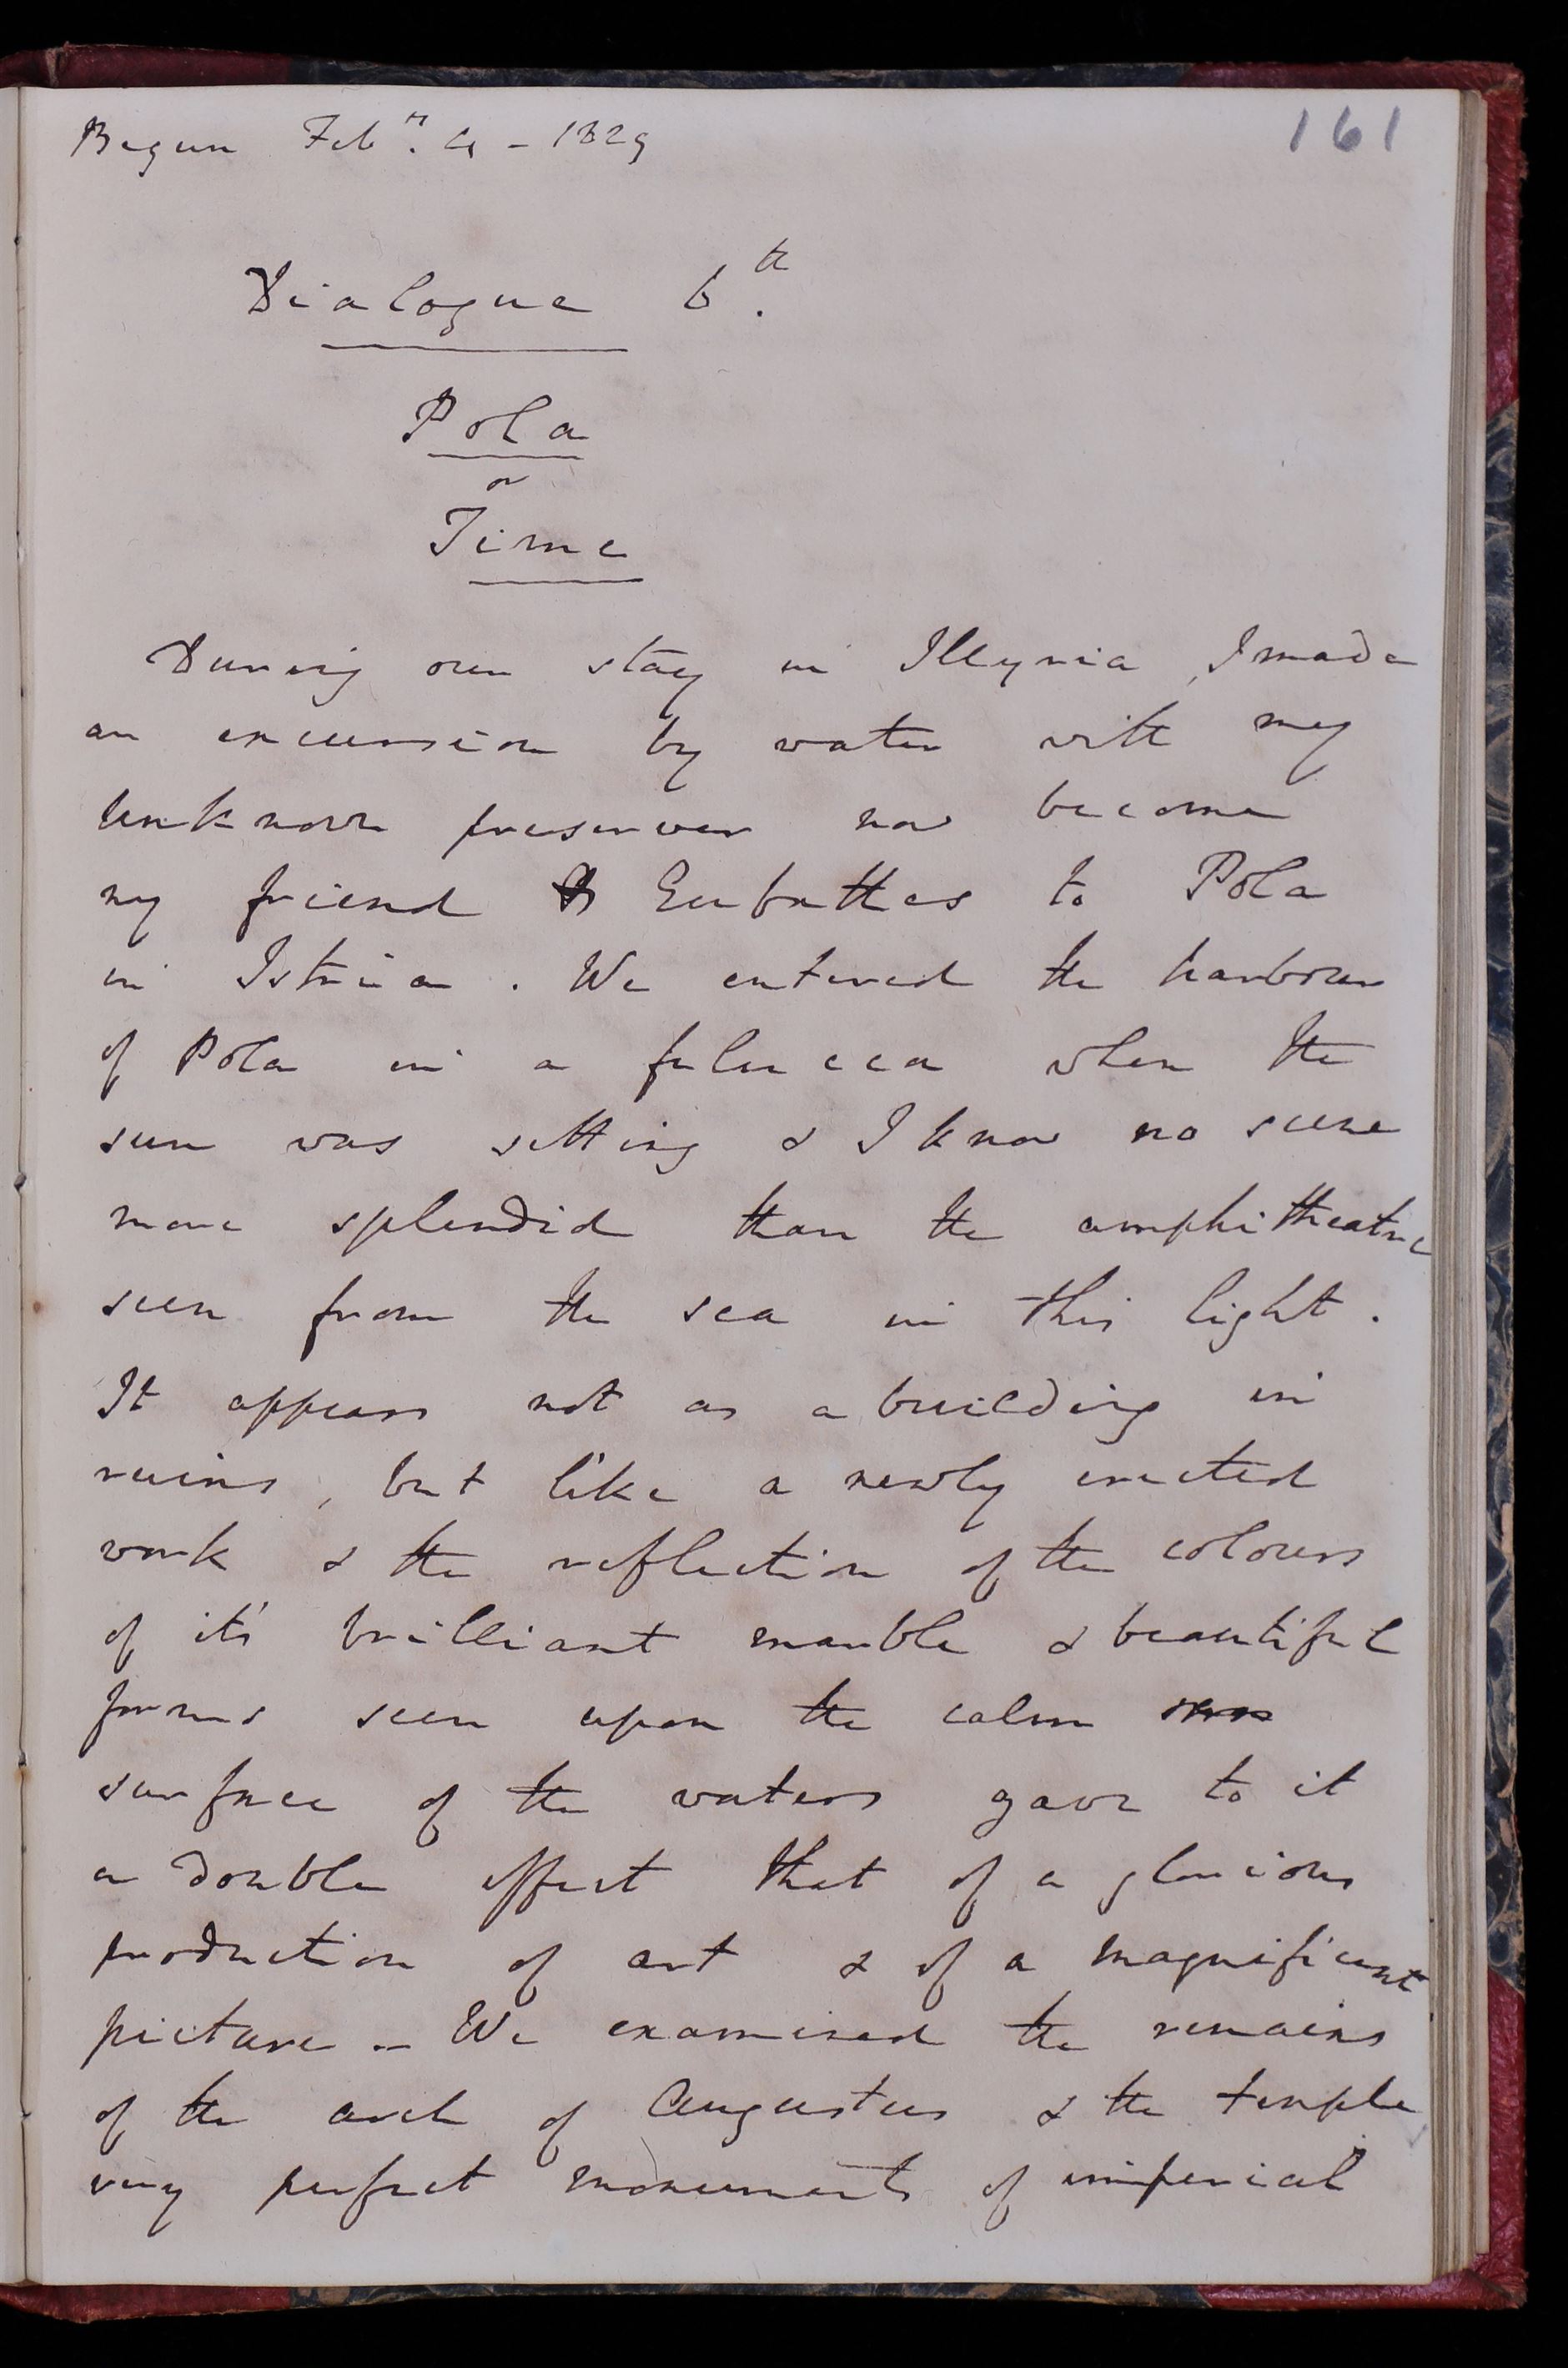 161
Begun Feb.ry 4 - 1829
Dialogue 6.th
Pola
or
Time
During our stay in Illyria, I made
an excursion by water with my
unknown preserver now become
my friend Eubathes to Pola
in Istria. We entered the harbour
of Pola in a felucca when the
sun was setting & I know no scene
more splendid than the amphitheatre
seen from the sea in this light.
It appears not as a building in
ruins, but like a newly erected
work & the reflection of the colours
of it's brilliant marble & beautiful
forms seen upon the calm
surface of the waters gave to it
a double effect that of a glorious
production of art & of a magnificent
picture - We examined the remains
of the arch of Augustus & the temple
very perfect monuments of imperial